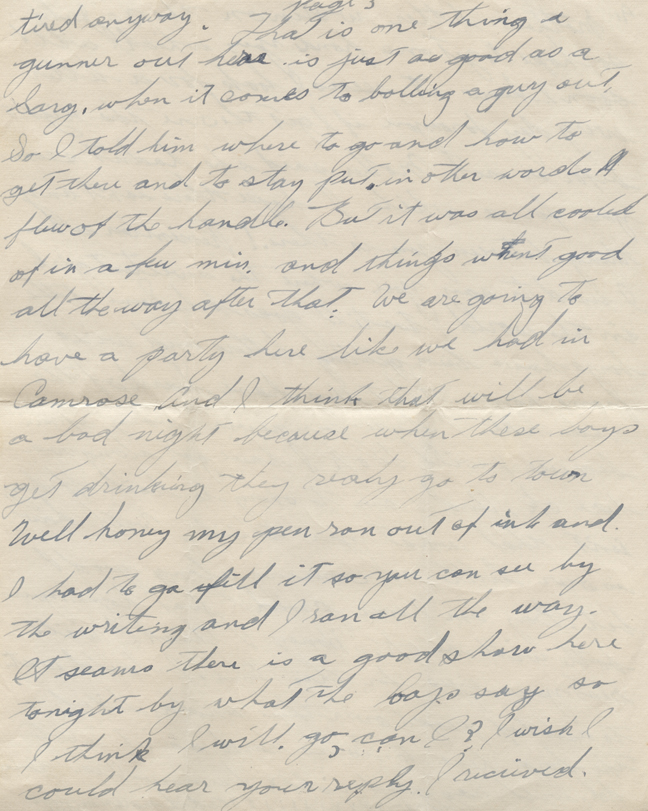 page 3
tired anyway. That is one thing a
gunner out here is just as good as a
Sarg. when it comes to bolling a guy out.
So I told him where to go and how to
get there and to stay put. in other words I
flew of the handle. But it was all cooled
of in a few min. and things whent good
all the way after that. We are going to
have a party here like we had in
Camrose. And I think that will be
a bad night because when these boys
get drinking they realy go to town
Well honey my pen ran out of ink and.
I had to go fill it so you can see by
the writing and I ran all the way.
It seams there is a good show here
tonight by what the boys say so
I think I will. go, can I? I wish I
could hear your reply. I recieved.